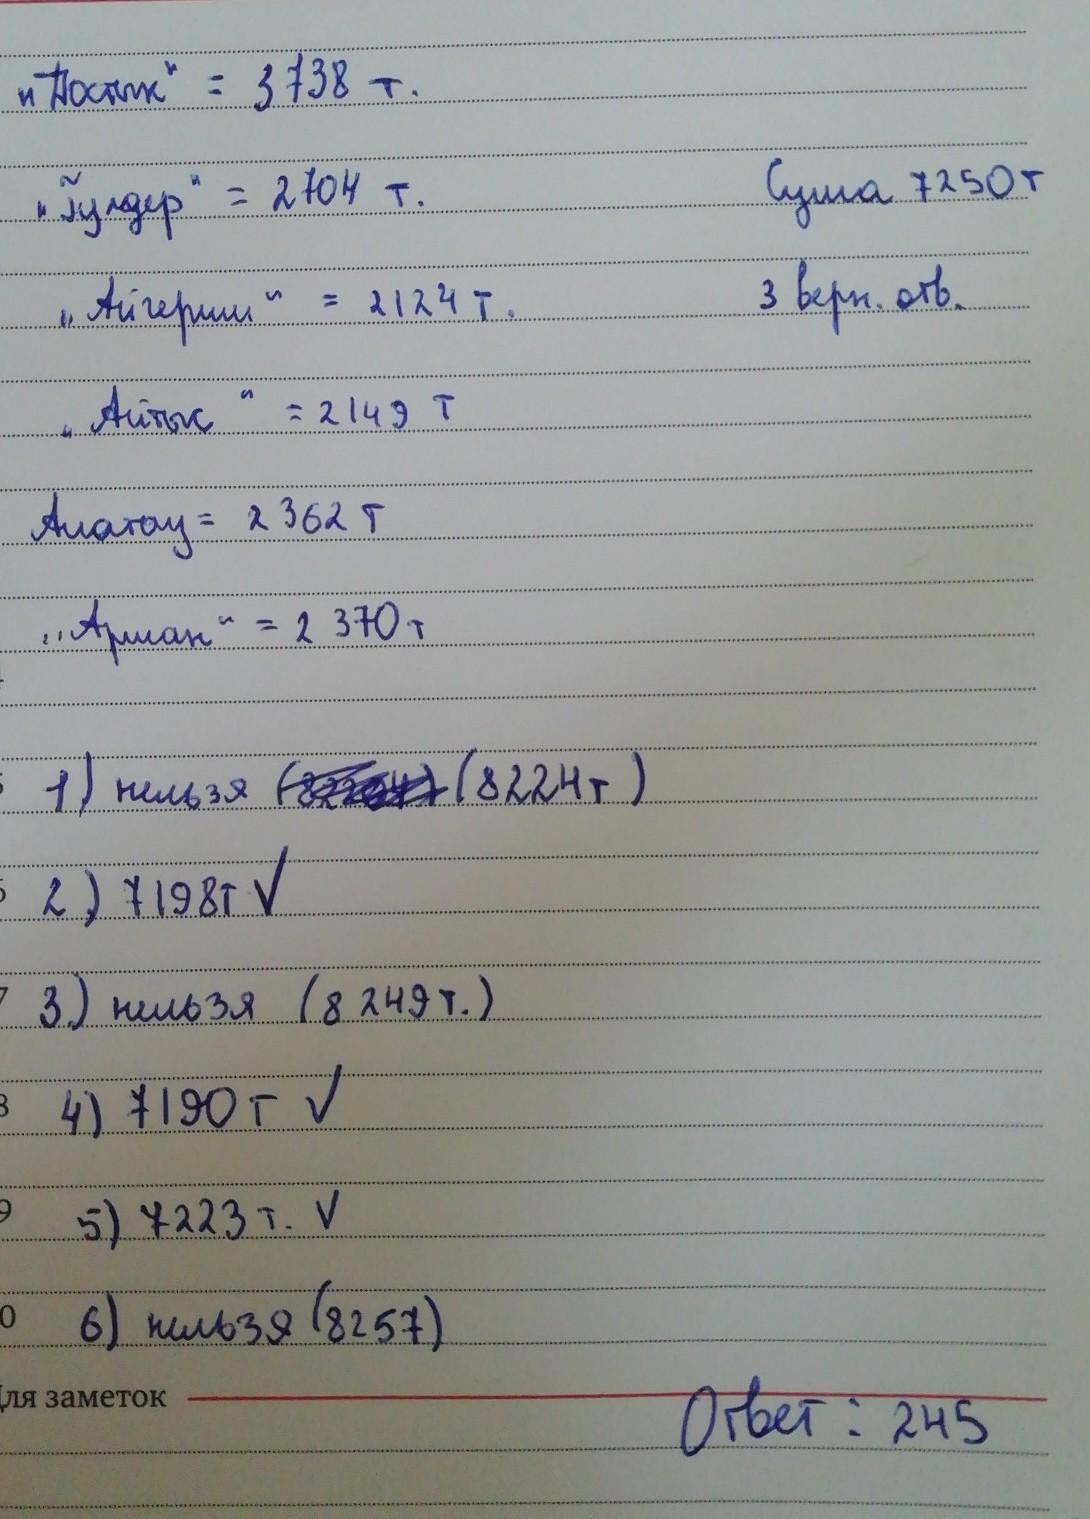 „Достык" = 3738 т.
„Гулдер" = 2704 т.
Сума 7250т
„Айгерим" = 2124 т.
3 верн. отв.
„Айтык" = 2149 т
Алатау = 2362 т
„Арман" = 2370т
1) нельзя (8224т)
2) 7198т ✓
3) нельзя (8249т.)
4) 7190т ✓
5) 7223т. ✓
6) нельзя (8257)
Для заметок
Ответ: 245